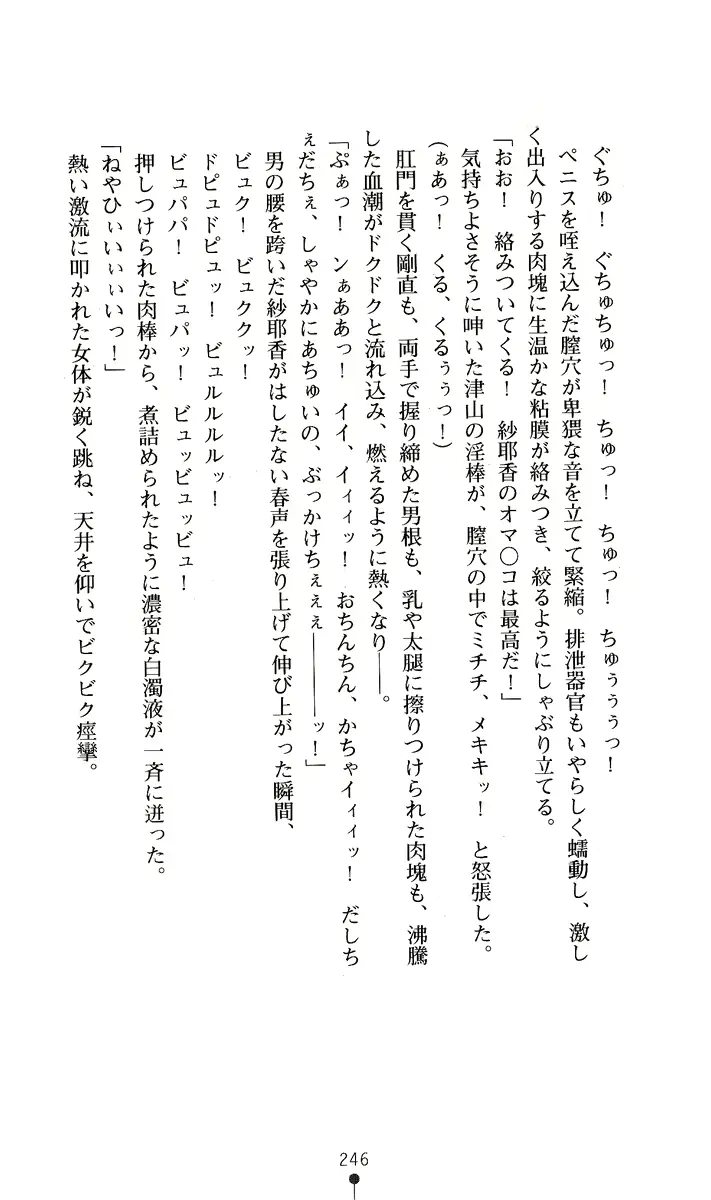 ぐちゅ！　ぐちゅちゅっ！　ちゅっ！　ちゅっ！　ちゅぅぅぅっ！
ペニスを咥え込んだ膣穴が卑猥な音を立てて緊縮。排泄器官もいやらしく蠕動し、激し
く出入りする肉塊に生温かな粘膜が絡みつき、絞るようにしゃぶり立てる。
「おお！　絡みついてくる！　紗耶香のオマ〇コは最高だ！」
気持ちよさそうに呻いた津山の淫棒が、膣穴の中でミチチ、メキキッ！　と怒張した。
(ぁあっ！　くる、くるぅぅっ！)
肛門を貫く剛直も、両手で握り締めた男根も、乳や太腿に擦りつけられた肉塊も、沸騰
した血潮がドクドクと流れ込み、燃えるように熱くなり――。
「ぷぁっ！　ンぁああっ！　イイ、イィィッ！　おちんちん、かちゃイィィッ！　だしち
ぇだちぇ、しゃやかにあちゅいの、ぶっかけちぇぇぇ――――ッ！」
男の腰を跨いだ紗耶香がはしたない春声を張り上げて伸び上がった瞬間、
ビュク！　ビュククッ！
ドピュドピュッ！　ビュルルルルッ！
ビュパパ！　ビュパッ！　ビュッビュッビュ！
押しつけられた肉棒から、煮詰められたように濃密な白濁液が一斉に迸った。
「ねやひぃいぃぃいいっ！」
熱い激流に叩かれた女体が鋭く跳ね、天井を仰いでビクビク痙攣。
246